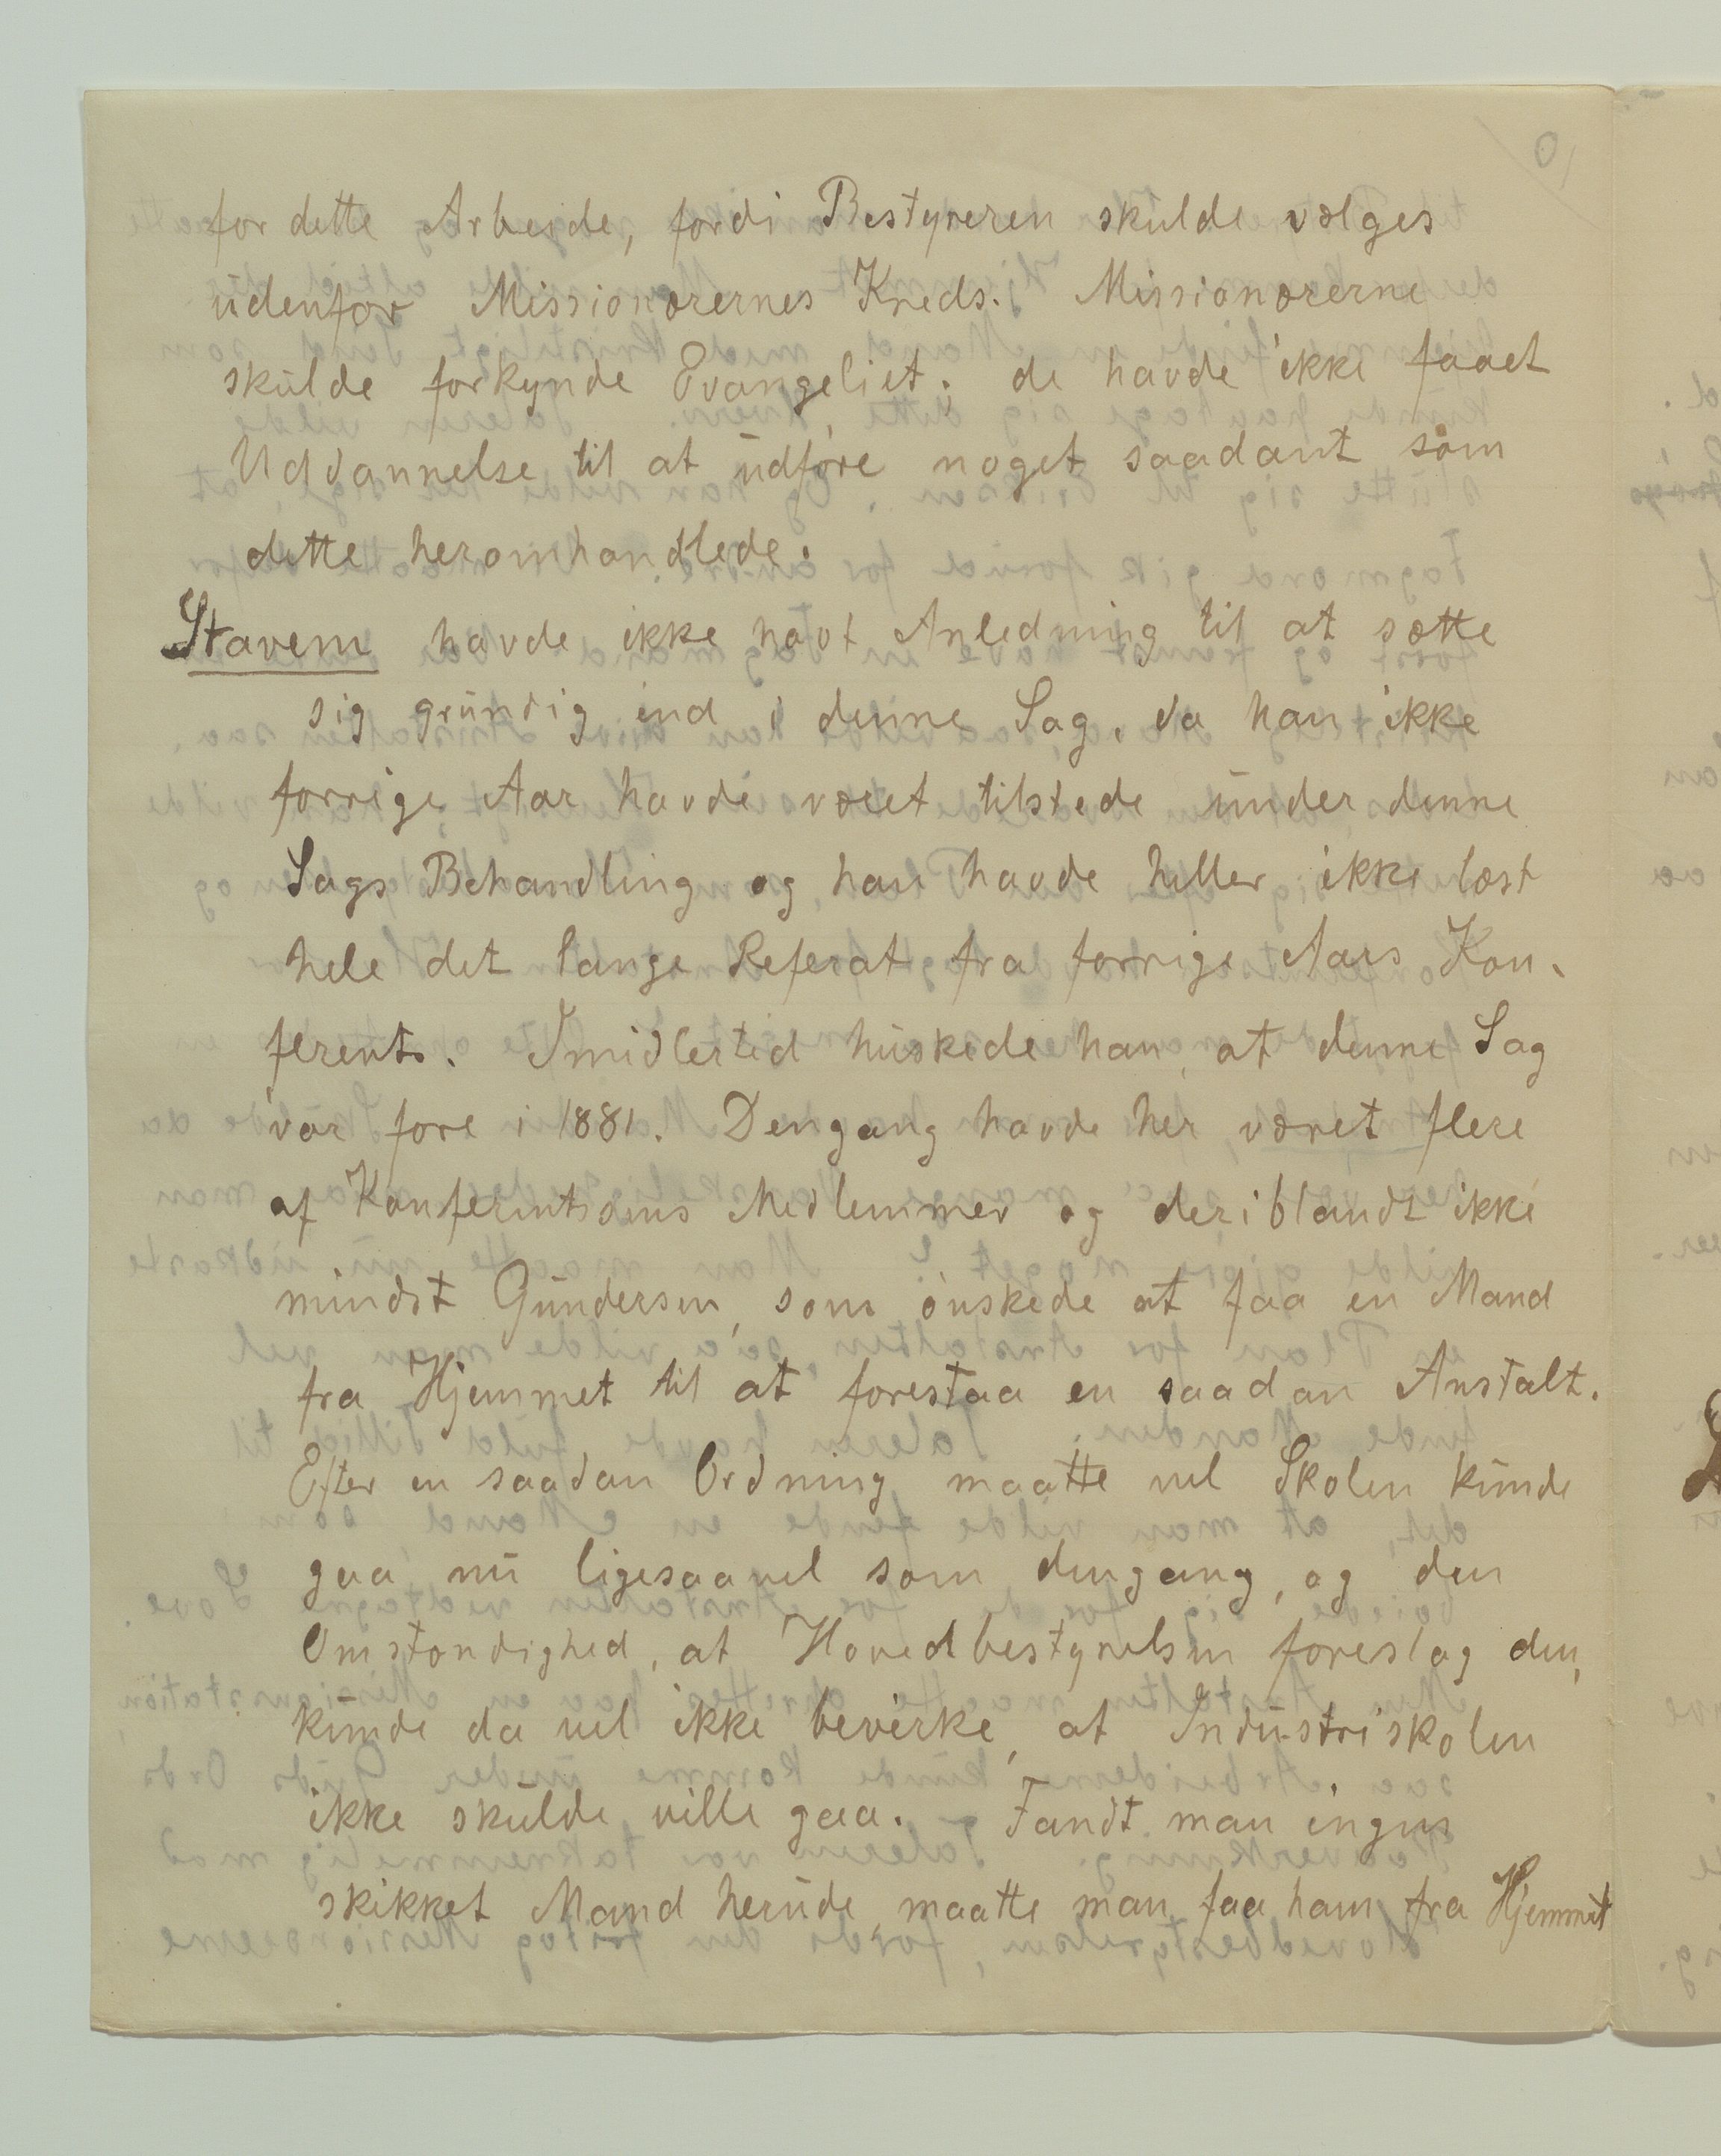 for dette Arbeide, fordi Bestyreren skulde vælges
udenfor Missionærernes Kreds. Missionærerne
skulde forkynde Evangeliet; de havde ikke faaet
Uddannelse til at udføre noget saadant som
dette heromhandlede.
Stavem havde ikke havt Anledning til at sætte
sig grundig ind i denne Sag, da han ikke
forrige Aar havde været tilstede under denne
Sags Behandling og han havde heller ikke læst
hele det lange Referat fra forrige Aars Kon-
ferents. Imidlertid huskede han, at denne Sag
var fore i 1881. Dengang havde her været flere
af Konferentsens Medlemmer og deriblandt ikke
mindst Gundersen, som ønskede at faa en Mand
fra Hjemmet til at forestaa en saadan Anstalt.
Efter en saadan Ordning maatte vel Skolen kunde
gaa nu ligesaavel som dengang, og den
Omstændighed, at Hovedbestyrelsen foreslog den,
kunde da vel ikke bevirke, at Industriskolen
ikke skulde ville gaa. Fandt man ingen
skikket Mand herude, maatte man faa ham fra Hjemmet